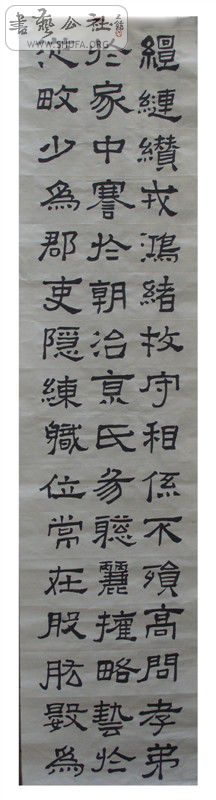 書藝公社
WWW.SHUFA.ORG
繵縺纘戎鴻緒牧守相係不殞高問孝弟
於家中謇於朝治京氏易聰麗權略藝於
從畋少為郡吏隱練職位常在股肱數為